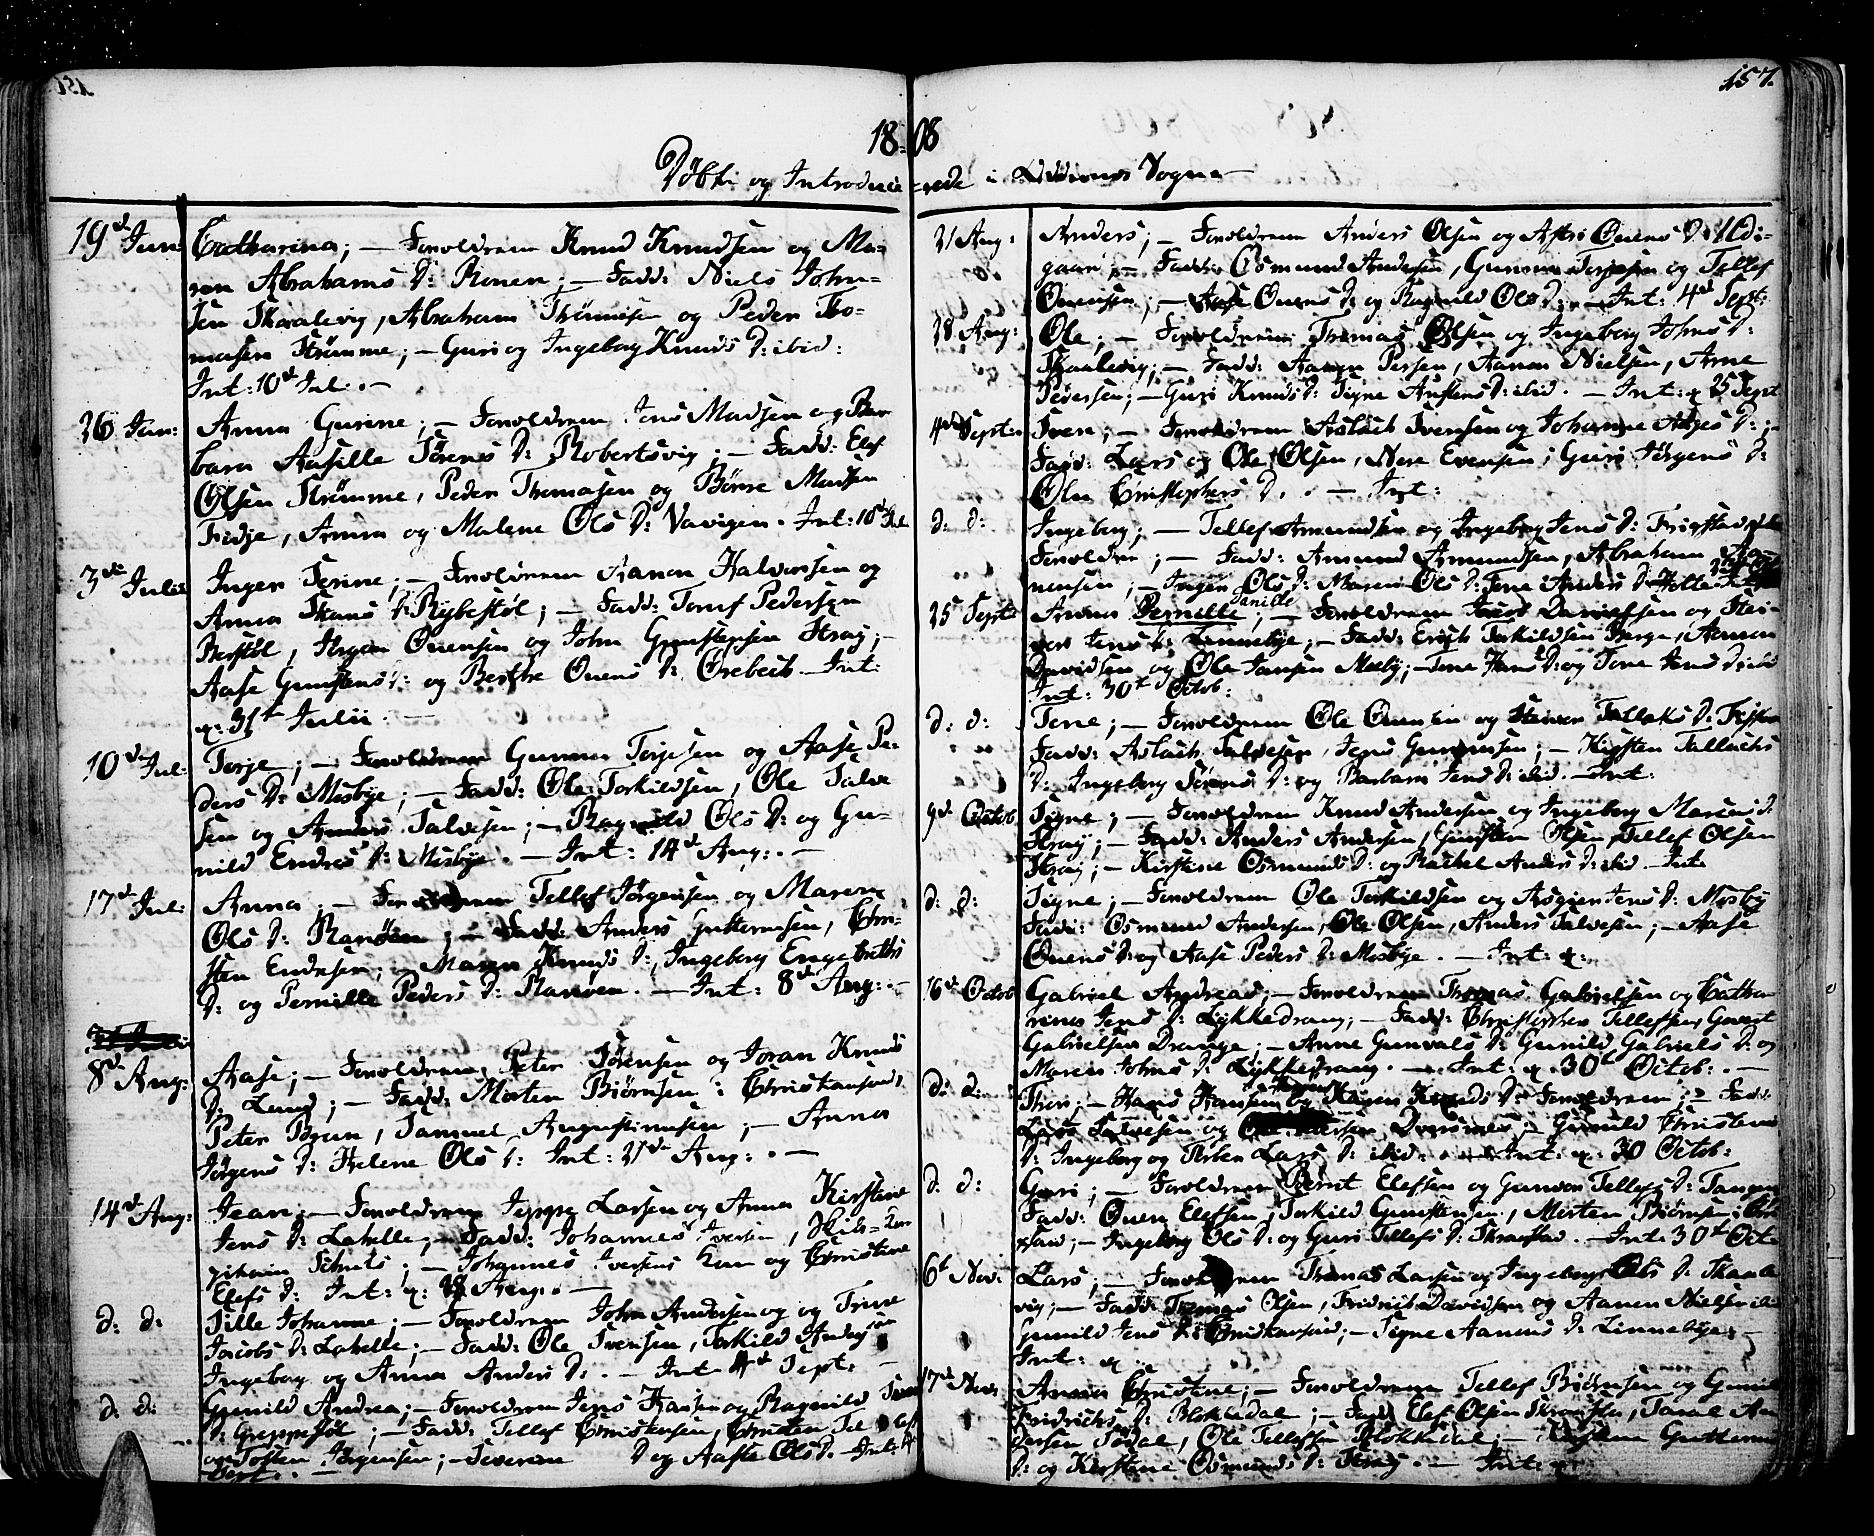 156
157.
18-08
Døbte og Introducerede i Oddernes Sogne
19d Jun: Catharina; — Forældrene Knud Knudsen og Ma-
ren Abrahams D: Ronen; — Fadd: Niels John-
sen Skaalevig, Abraham Thomesen og Peder Tho-
masen Strømme; — Guri og Ingeborg Knuds D: ibid:
Int: 10d Jul. —
26 Jun: Anna Gurine; — Forældrene Jens Madsen og Bar-
bara Aasille Sørens D: Robertsvig; — Fadd: Elef
Olsen Strømme, Peder Thomasen og Børre Madsen
Fredje, Anna og Malene Ols D: Vavigen. Int: 10d Jul
3de Julii Inger Serine; — Forældrene Aanen Halvorsen og
Anna Hans D: Rybestøl; — Fadd: Toruf Pedersen
Berstøl, Jørgen Onensen og John Gunstensen Straj; —
Aase Gunstens D: og Berthe Onens D: Ørebech. Int:
q. 31t Julii. —
10d Jul: Torje; — Forældrene Gunner Torjesen og Aase Pe-
ders D: Mosbye; — Fadd: Ole Torkildsen, Ole Salve
sen og Anders Salvesen; — Ragnild Ols D: og Gu-
nild Endres D: Mosbye. — Int: 14d Aug: —
17d Jul: Anna; — Forældrene Tellef Jørgensen og Maren
Ols D: Ranøen; — Fadd: Anders Guttormsen, Chri-
sten Endresen; — Maren Knuds D: Ingeborg Engebretts
D: og Pernille Peders D: Ranøen. — Int: 8d Aug: —
8d Aug: Aase; — Forældrene Peter Sørensen og Joran Knuds
D: Lund; — Fadd: Morten Biørnsen i Christiansand,
Peter Brun, Samuel Augustinusen; — Anna
Jørgens D: Helene Ols D: Int: 21de Aug: . —
14d Aug: Jean; — Forældrene Jeppe Larsen og Anna Kirstine
Jens D: Lahelle; — Fadd: Johannes Iversen, Skibs-
Schults; — Johannes Iversens Kone og Christine
Elefs D: Int: q: Aug. —
d: d: Sille Johanne; — Forældrene John Andersen og Trine
Jacobs D: Lahelle; — Fadd: Ole Svensen, Torkild Andersen
Ingeborg og Anna Anders D: . — Int 4d Sept: —
d: d: Gunild Andrea; — Forældrene Jens Hansen og Ragnild
D: Greppestøl; — Fadd: Tellef Christensen, Christen
og Tosten Jørgensen; — Severine D og Aaste Ols D. Int: 4
Sept. —
21 Aug: Anders; — Forældrene Anders Olsen og Astri Onens D:
gaard; — Fadd: Osmund Andersen, Gunner Torjesen og Tellef
Onensen; — Aase Onens D: og Ragnild Ols D: — Int: 4d Sept:
28 Aug: Ole; — Forældrene Thomas Olsen og Ingeborg Johns D:
Skaalevig; — Fadd: Aanen Persen, Aanen Nielsen, Arne
Pedersen; — Guri Knuds D: Signe Austens D: ibid. — Int: q 25 Sept
4d Sept: Sven; — Forældrene Aslach Svensen og Johanne Aages D: ; —
Fadd: Lars og Ole Olsen, Nere Evensen; Guri Jørgens D:
Olea Christophers D. . — Int:
d: d: Ingeborg; — Tellef Amundsen og Ingeborg Jens D: Frigstad
Forældre; — Fadd: Amund Amundsen, Abraham Aa-
nensen; — Inger Ols D: Maren Ols D: Tone Anders D:
25 Sept: Anna Pernille Danille; — Forældrene Jacob Davidsen og
Jens D: Linnebye; — Fadd: Erich Torkildsen Berge, Aanen
Davidsen og Ole Jansen Moeby; — Tone Hans D: og Tone Jens D: ibid
Int: 30t Octob:
d: d: Tone; — Forældrene Ole Onensen og Steinver Tallaks D:
Fadd: Aslach Salvesen, Jens Gunnersen; — Kirsten Tallachs
D: Ingeborg Sørens D: og Barbara Jens D: ibid. — Int:
9d Octob Signe; — Forældrene Knud Andersen og Ingeborg D:
Straj; — Fadd: Anders Andersen, Gunsten Olsen, Tellef Olsen
Straj; — Kirstine Osmunds D: og Rachel Anders D: ibid Int:
d: d: Signe; — Forældrene Ole Torkildsen og Asgier Jens D: Mosby
Fadd: Osmund Andersen, Ole Olsen, Anders Salvesen; — Aase
Onens D: og Aase Peders D: Mosbye. — Int: q:
16d Octob Gabriel Andreas; — Forældrene Thomas Gabrielsen og Catha-
rina Jens D: Lykkedrang; — Fadd: Christopher Tellefsen, Govert
Gabrielsen Drange; — Anne Gunvals D: Gunild Gabriels D: og
Maren Johns D: Lykkedrang. — Int: q. 30t Octob: . —
d: d: Thori; — Hans Hansen og Karen Knuds D: Forældrene; — Fadd:
Lars Salvesen og Dønsmes; — Gunild Christens
D: Ingeborg og Torber Lars D: ibid: — Int: q: 30 Octob:
d: d: Guri; — Forældrene Bernt Elefsen og Gunvor Tellefs D: Tangen
Fadd: Onen Elefsen, Torkild Gunstensen, Morten Biørnsen Chri
stsand; — Ingeborg Ols D: og Guri Tellefs D: Skraastad. — Int: 30t Octo
6t Nov: Lars; — Forældrene Thomas Larsen og Ingeborg Ols D: Skaale
vig; — Fadd: Thomas Olsen, Fridrich Davidsen og Aanen Nielsen ibid
Gunild Jens D: Christiansand; — Signe Aanens D: Linnebye; —
Int: q
17d Nov: Anna Christine; — Forældrene Tellef Biørnsen og Gunild
Fridrichs D: Blokkedal; — Fadd: Elef Olsen Skraastad, Taral An-
dersen Sødal, Ole Tellefsen Blokkedal; — Guttorms
D: og Kirstine Osmunds D: Straj. — Int: q.